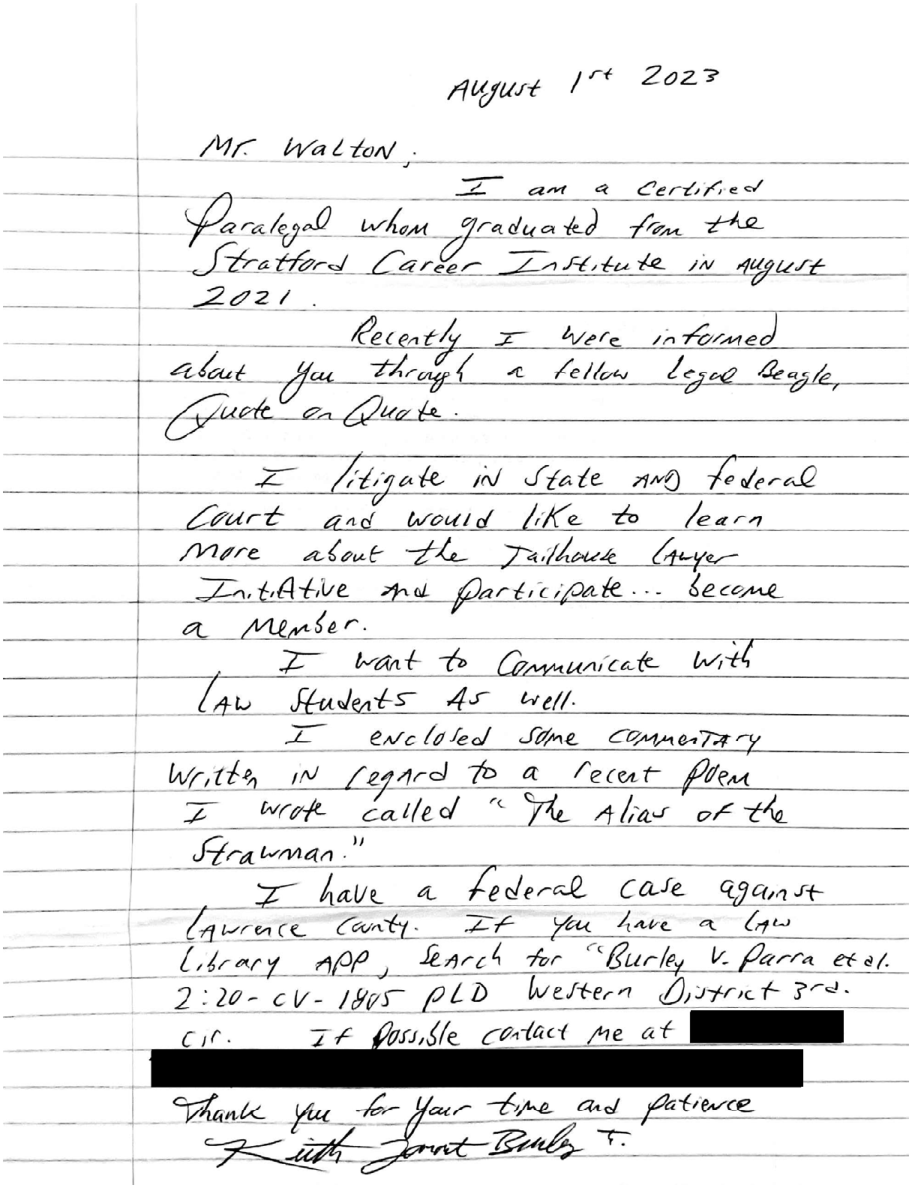 August 1st 2023
Mr. Walton,
I am a Certified
Paralegal whom graduated from the
Stratford Career Institute in August
2021.
Recently I were informed
about you through a fellow Legal Beagle,
Quote on Quote.
I litigate in State AND federal
Court and would like to learn
more about the Jailhouse Lawyer
Initiative and participate... become
a Member.
I want to Communicate with
Law Students As well.
I enclosed some commentary
written in regard to a recent poem
I wrote called "The Alias of the
Strawman."
I have a federal case against
Lawrence County. If you have a Law
Library APP, search for "Burley V. Parra et al.
2:20-cv-1805 PLD Western District 3rd.
Cir. If possible contact me at
Thank you for your time and patience
Keith Burley